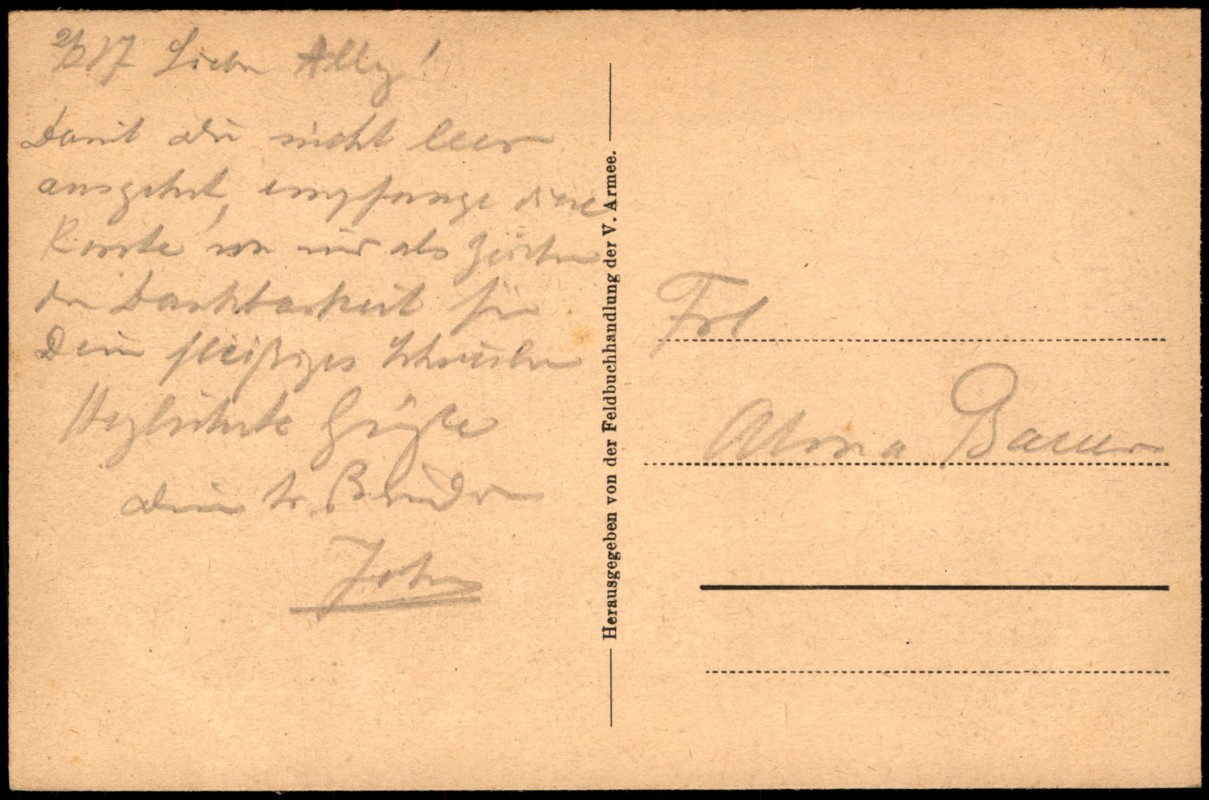 2/2 17 Liebe Ally!
Damit du nicht leer
ausgehst, empfange diese
Karte von mir als Zeichen
der Dankbarkeit für
Dein fleißiges Schreiben
Herzlichste Grüße
dein tr. Bruder
John
Herausgegeben von der Feldbuchhandlung der V. Armee.
Frl
Alma Bauer